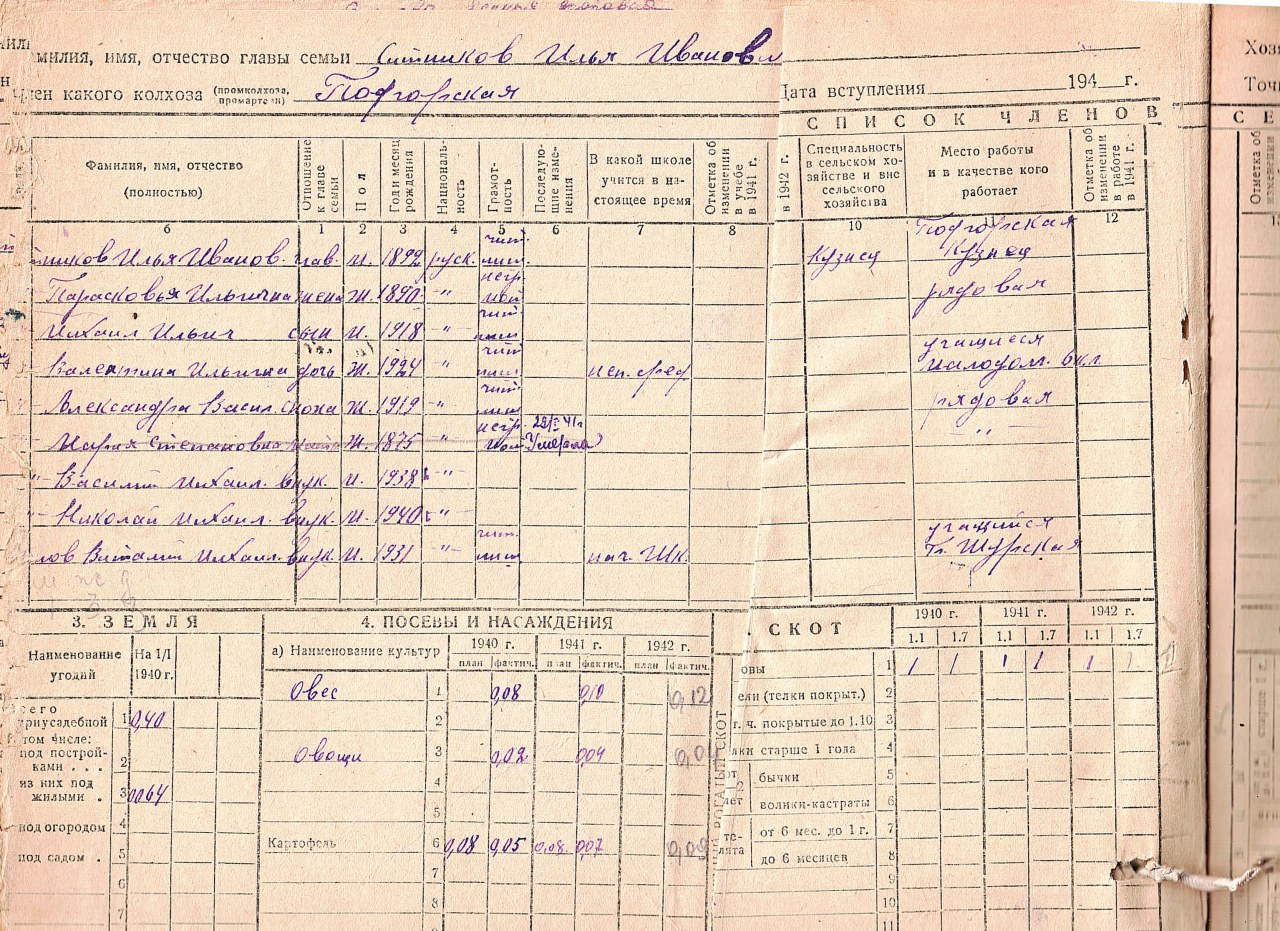 милия, имя, отчество главы семьи Ситников Илья Иванови
член какого колхоза (промколхоза, промартели) Подгорская
Дата вступления 194 г.
СПИСОК ЧЛЕНОВ
Фамилия, имя, отчество (полностью)
Отношение к главе семьи
Пол
Год и месяц рождения
Националь-ность
Грамот-ность
Последую-щие изме-нения
В какой школе учится в на-стоящее время
Отметка об изменении в учебе в 1941 г.
в 1942 г.
Специальность в сельском хо-зяйстве и вне сельского хозяйства
Место работы и в качестве кого работает
Отметка об изменении в работе в 1941 г.
б 1 2 3 4 5 6 7 8 10 11 12
ников Илья Иванов. глав. м. 1892 руск. чит. пис. кузнец Подгорская Кузнец
Парасковья Ильична жена Ж. 1890 -"- негр. мой рядовая
Михаил Ильич сын м. 1918 -"- чит. пис.
Валентина Ильична дочь Ж. 1924 " чит. пис. неп. сред учащиеся малодом. вкл
Александра Васил. сноха Ж. 1919 -" чит. пис. рядовая
Мария Степановна Ж. 1875 " негр. мой 41г Умерла -"-
-"- Василий Михаил. внук. м. 1938 -"-
"- Николай Михаил. внук. м. 1940 -"-
лов Виталий Михаил. внук. м. 1931 -"- чит. пис. нач. Шк. учащийся Шурская
3. ЗЕМЛЯ
Наименование угодий
На 1/I 1940 г.
всего приусадебной 1 0,40
том числе:
под построй-ками . . . 2
из них под жилыми . 3 0064
под огородом 4
под садом . 5
6
7
4. ПОСЕВЫ И НАСАЖДЕНИЯ
а) Наименование культур
1940 г. 1941 г. 1942 г.
план фактич. план фактич. план фактич.
Овес 1 0,08 0,10 0,12
2
Овощи 3 0,02 0,04 0,0
4
5
Картофель 6 0,08 0,05 0,08 0,07 0,09
7
8
СКОТ
1940 г. 1941 г. 1942 г.
1.1 1.7 1.1 1.7 1.1 1.7
овы 1 1 1 1 1 1 1
ели (телки покрыт.) 2
т. ч. покрытые до 1.10 3
лки старше 1 года 4
бычки 5
волики-кастраты 6
те-лята
от 6 мес. до 1 г. 7
до 6 месяцев 8
9
10
11
РОГАТЫЙ СКОТ
Хозя
Точн
СЕ
Отметка об